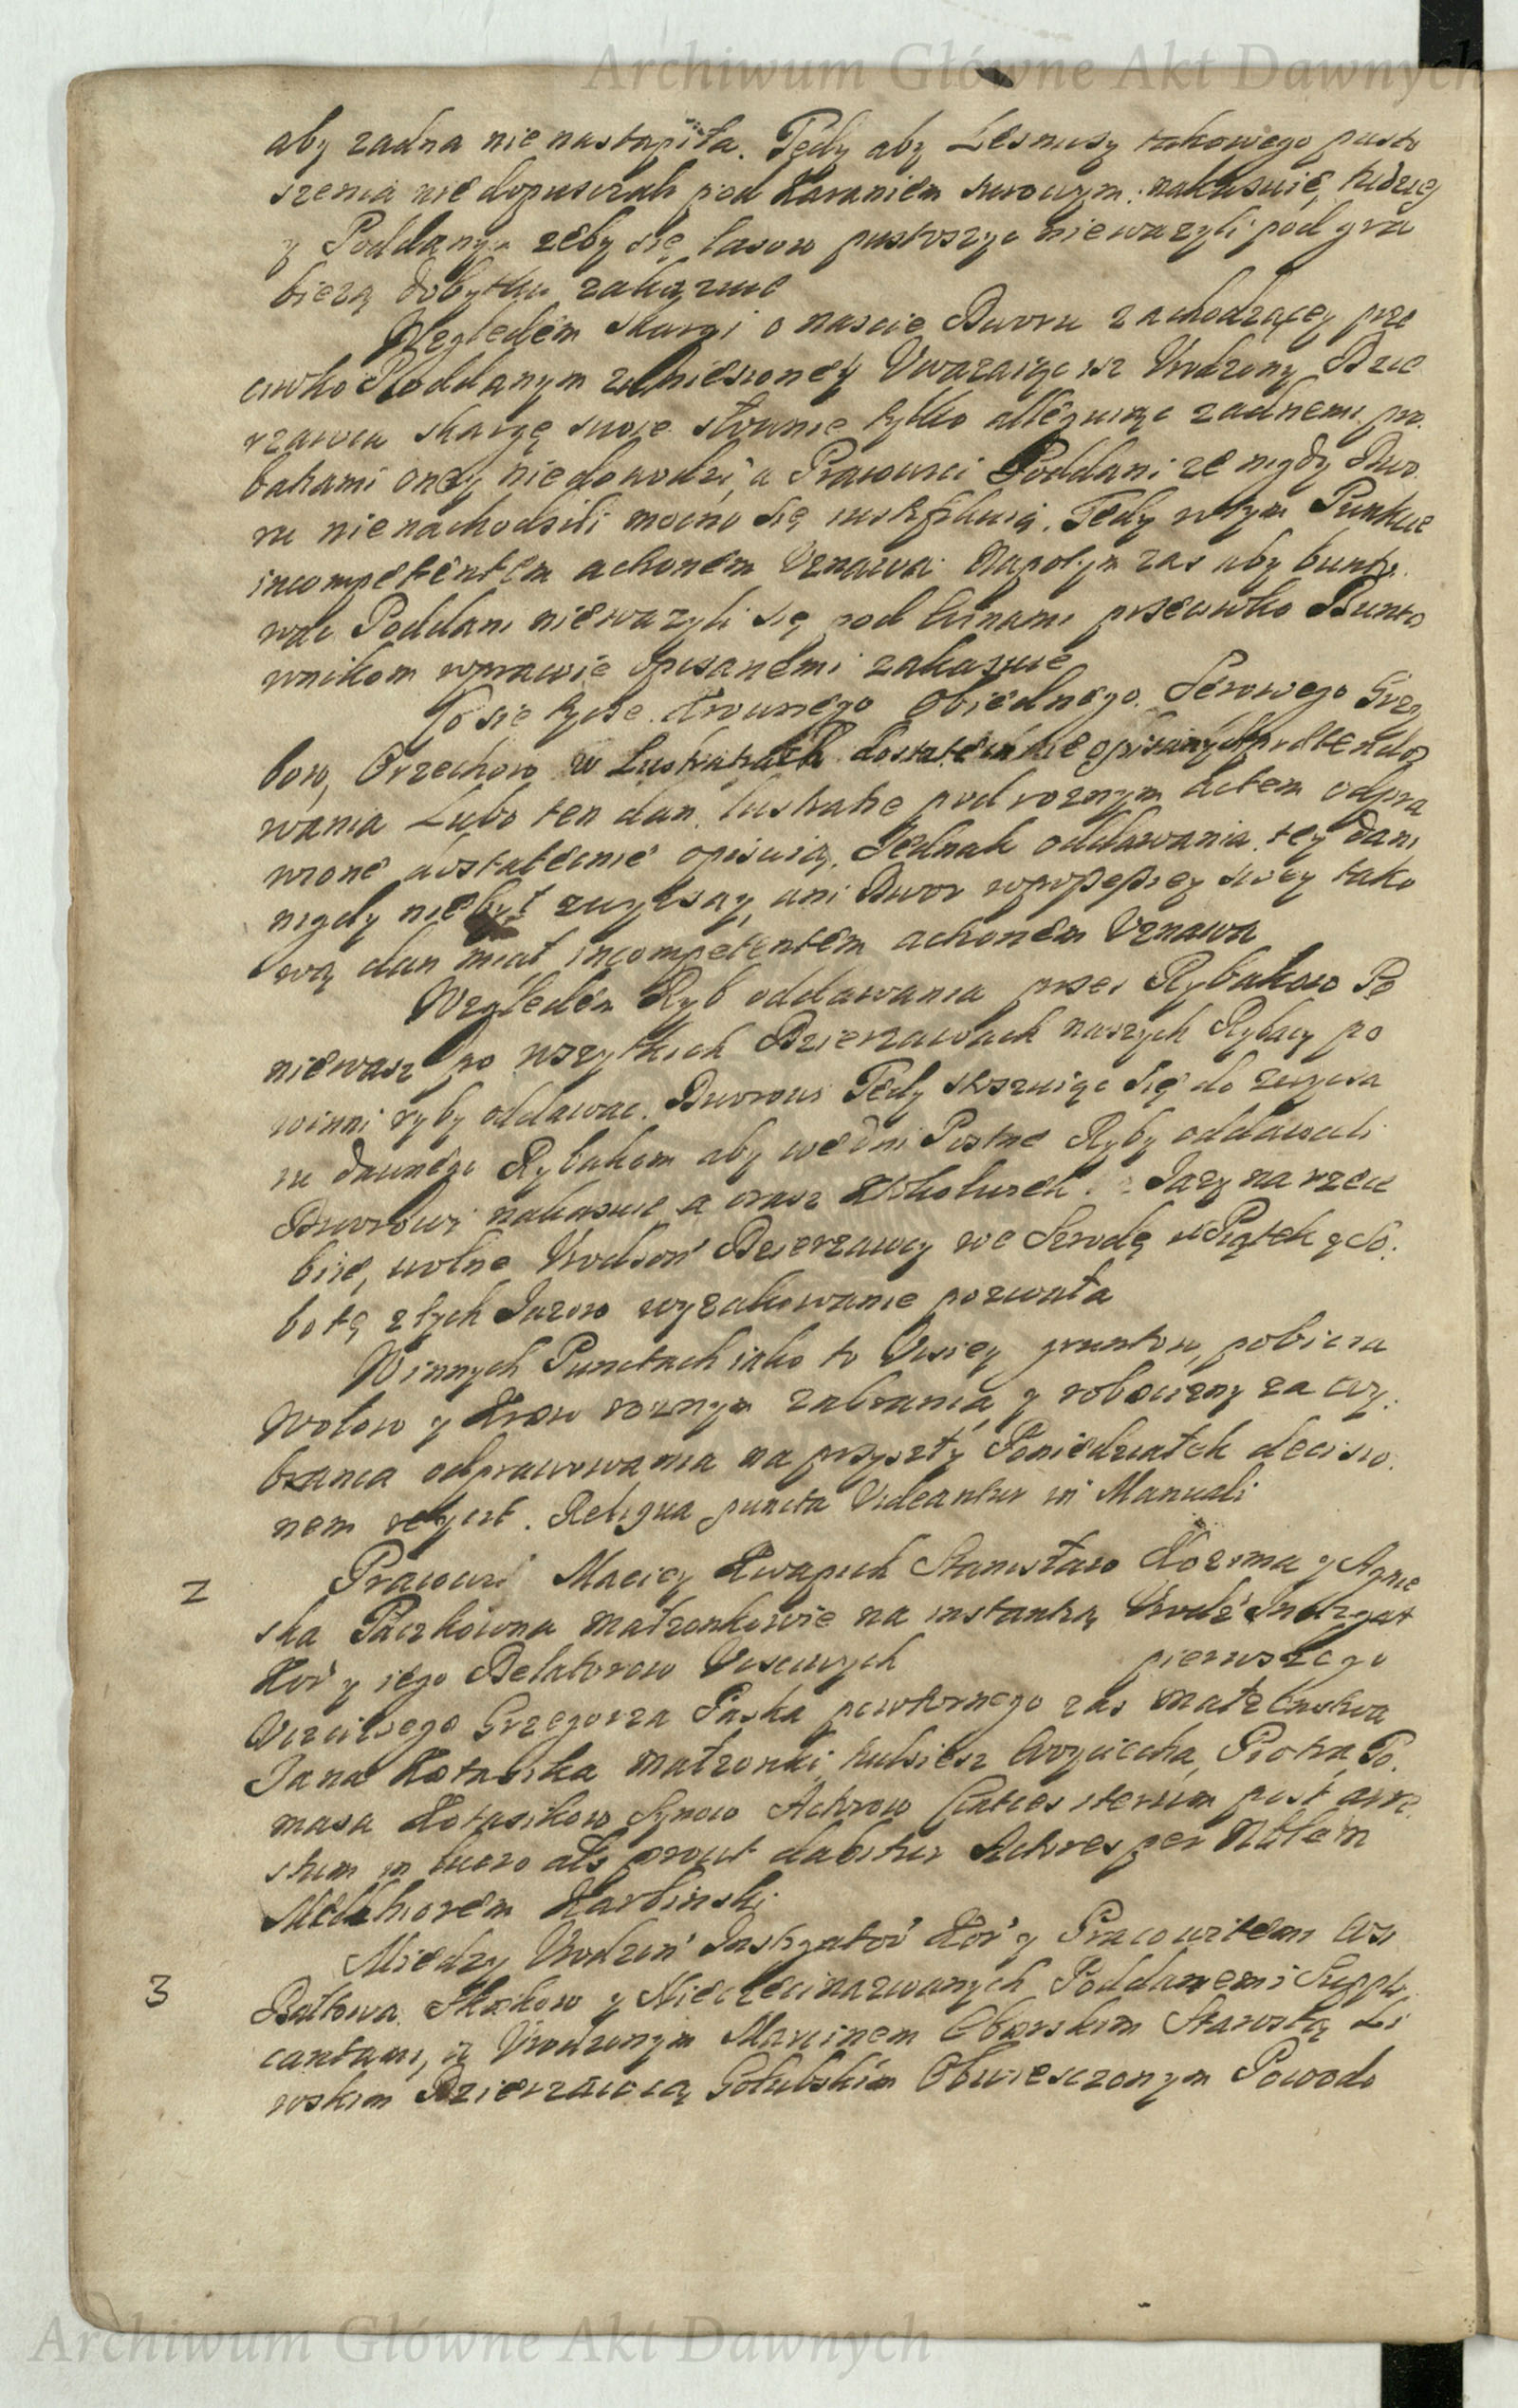 Archiwum Główne Akt Dawnych
aby zadna nie nastąpiła. Tedy aby Lesniczy takowego pusto
szenia nie dopuszczali pod karaniem surowym nakazuie, tudziez
y Poddanym zeby się lasow pustoszyc niewazyli pod gra
biezą dobytku zakazuie
Względem skargi o nascie Dworu zachodzącey prze
ciwko Poddanym zaniesioney Uwazaiąc isz Urodzony Dzie
rzawca skargę swoie słownie tylko alleguiąc zadnemi pro
bacami oney niedowodzi, a Pracowici Poddani ze nigdy Dwo
ru nienachodzili mocno się iustifikuią. Tedy w tym Punkcie
incompetentem actionem Uznawa. Napotym zas aby bunto
wac Poddani niewazyli się pod winami przeciwko Bunto
wnikom w prawie opisanemi zakazuie
Co się tycze drownego Obiednego. Serowego Grzy
bow, Orzechow w Lustratiach dostatecznie opisanych pretendo
wania Lubo ten dan lustratie pod roznym Actem odpra
wione dostatecznie opisuią. Jednak oddawania tey dani
nigdy niebył zwyczay, ani Dwor w possessiey swey tako
wą dan miał incompetentem actionem Uznawa
Względem Ryb oddawania przez Rybakow Po
niewasz po wszytkich Dzierzawach naszych Rybacy po
winni ryby oddawac Dworowi Tedy stosuiąc się do zwycza
iu dawnego Rybakom aby we dni Postne Ryby oddawali
Dworowi nakazuie a orasz Jazy na rzece
bite, wolne Urodzoń Dzierzawcy we Srodę w Piątek y So
botę z tych Jazow wyzakowanie pozwala
W innych Punctach iako to Ussiey gruntow, pobicia
Wołow y Krow roznym zabrania y robocizny za czy
bzania odprawowania na przyszły Poniedziałek decisio
nem reiicit. Reliqua puncta Videantur in Manuali
2 Pracowici Maciey Kwapich Stanisław Kozima y Agnie
ska Paczkowna małzonkowie na instantią Urodź Instygat
Kor y iego Delatorow Usciwych pierwszego
Uczciwego Grzegorza Paska powtornego zas małzenstwa
Jana Kotasika małzonki, tudziesz Woyciecha, Piotra, To
masa Kotasikow Synow Actorow Citatus iterum post arre
stum in lucro als prout dabitur Actores per Nblem
Melchiorem Karbinski
3 Miedzy Urodzoń Instygatoř Koř y Pracowitemi Wsi
Bałtowa Skokow y Nieczecinazwanych Poddanemi Suppli
cantami, a Urodzonym Marcinem Oborskim Starostą Li
wskim Dzierzawcą Gołubskim Obwiesczonym Powodo
Archiwum Główne Akt Dawnych